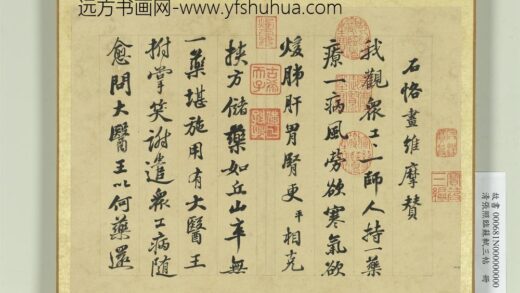 远方书画网- www.yfshuhua.com
石恪畫維摩贊
我觀衆工一師人持一藥
療一病風勞欲寒氣欲
煖肺肝胃腎更平相克
挾方儲藥如丘山卒無
一藥堪施用有大醫王
拊掌笑謝遣衆工病隨
愈問大醫王以何藥還
故書 000681N000000000
清張照臨蘇軾三帖 冊